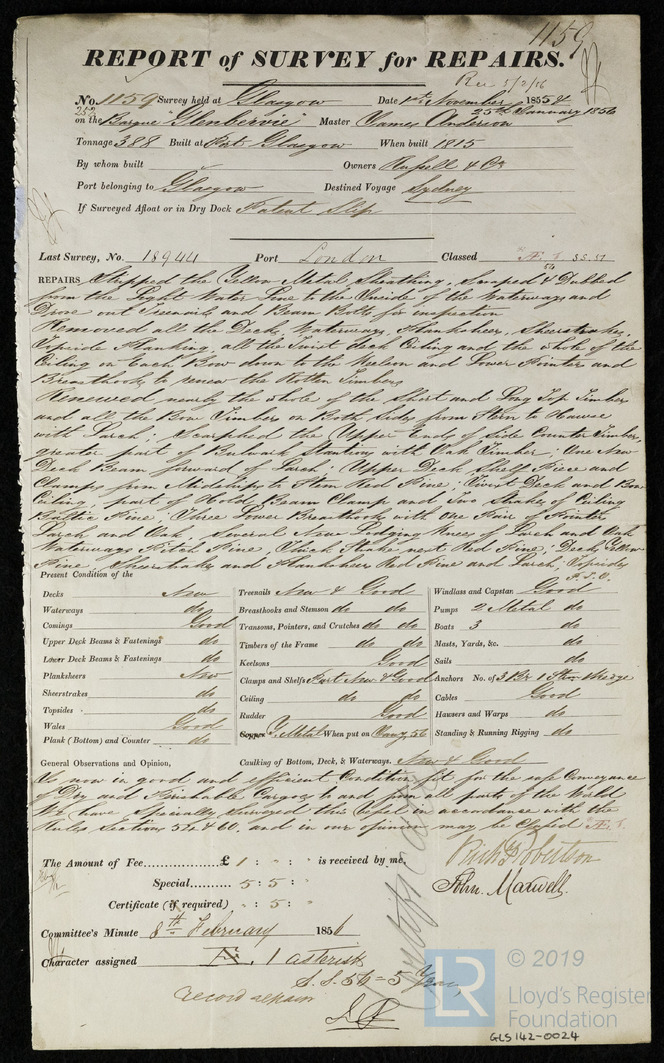 1159
REPORT of SURVEY for REPAIRS.
Rec 5/2/56
No. 1159 Survey held at Glasgow Date 1st November 1855 &
25th January 1856
253
on the Barque "Glenbervie" Master James Anderson
Tonnage 388 Built at Port Glasgow When built 1815
By whom built Owners Russell & Co
Port belonging to Glasgow Destined Voyage Sydney
If Surveyed Afloat or in Dry Dock Patent Slip
Last Survey, No. 18944 Port London Classed Æ 1 SS.51
54
REPAIRS Stripped the Yellow Metal Sheathing, Scraped & Dubbed
from the Light Water Line to the Underside of the Waterways and
Drove out Treenails and Beam Bolts for inspection
Removed all the Deck, Waterways, Plansheers, Sheerstrakes,
Topside Planking, all the Twixt Deck Ceiling and the whole of the
Ceiling on Each Bow down to the Keelson and Lower Pointers and
Breasthooks to renew the Rotten Timbers
Renewed nearly the whole of the Short and Long Top Timbers
and all the Bow Timbers on Both Sides from Stem to Hawse
with Larch; Scarphed the Upper Ends of Side Counter Timbers,
greater part of Bulwark Stantions with Oak Timber; One New
Deck Beam forward of Larch; Upper Deck Shelf Piece and
Clamps from Midships to Stem Red Pine; Twixt Deck and Bow
Ceiling, part of Hold Beam Clamp and Two Strakes of Ceiling
Baltic Pine; Three Lower Breasthooks with one Pair of Pointers
Larch and Oak, several New Lodging Knees of Larch and Oak
Waterways Pitch Pine, Thick Strake next Red Pine, Deck Yellow
Pine, Sheerstrakes and Plansheers Red Pine and Larch, Topsides
P.T.O.
Present Condition of the
Decks New
Waterways do
Comings Good
Upper Deck Beams & Fastenings do
Lower Deck Beams & Fastenings do
Planksheers New
Sheerstrakes do
Topsides do
Wales Good
Plank (Bottom) and Counter do
Treenails New & Good
Breasthooks and Stemson do do
Transoms, Pointers, and Crutches do do
Timbers of the Frame do do
Keelsons Good
Clamps and Shelfs Part New & Good
Ceiling do do
Rudder Good
Copper Y. Metal When put on Jany 56
Caulking of Bottom, Deck, & Waterways. New & Good
Windlass and Capstan Good
Pumps 2 Metal do
Boats 3 do
Masts, Yards, &c. do
Sails do
Anchors No. of 3 Br 1 Strm 1 Kedge
Cables Good
Hawsers and Warps do
Standing & Running Rigging do
General Observations and Opinion,
Is now in good and efficient Condition fit for the safe Conveyance
of Dry and Perishable Cargoes to and from all parts of the World
We have Specially Surveyed this Vessel in accordance with the
Rules Sections 52 & 60, and in our opinion may be Classed Æ 1.
The Amount of Fee................£ 1 : " : " is received by me,
Special......... 5 : 5 : "
Certificate (if required) " : 5 : "
Richd Robertson
John Maxwell
Certificate
Committee's Minute 8th February 1856
Character assigned Æ. 1 asterisk
S.S.56=5 Years
record repairs
LR
© 2019
Lloyd's Register
Foundation
GLS142-0024